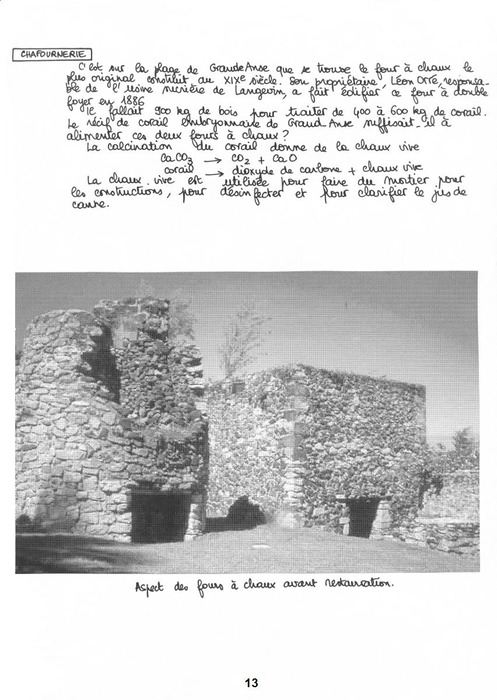 CHAFOURNERIE
C'est sur la plage de Grande Anse que se trouve le four à chaux le
plus original construit au XIXe siècle. Son propriétaire, Léon Orré, responsa-
ble de l'usine sucrière de Langevin, a fait édifier ce four à double
foyer en 1886
Il fallait 900 kg de bois pour traiter de 400 à 600 kg de corail.
Le récif de corail embryonnaire de Grand-Anse suffisait-il à
alimenter ces deux fours à chaux ?
La calcination du corail donne de la chaux vive
CaCO3 → CO2 + CaO
corail → dioxyde de carbone + chaux vive
La chaux vive est utilisée pour faire du mortier pour
les constructions, pour désinfecter et pour clarifier le jus de
canne.
Aspect des fours à chaux avant restauration.
13